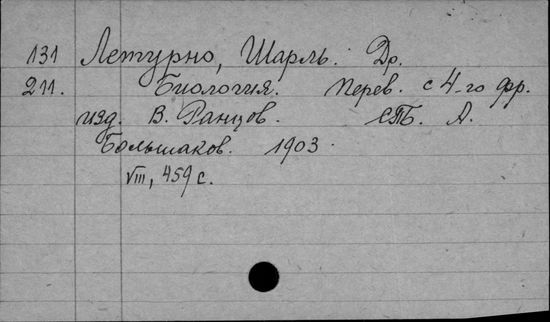 131 Летурно, Шарль. Др.
211. Биология. Перев. с 4-го фр.
изд. В. Ранцов. СПБ. А.
Большаков. 1903.
VIII, 459 с.